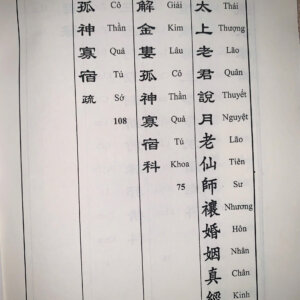 太上老君說月老仙師禳婚姻真經
Thái Thượng Lão Quân Thuyết Nguyệt Lão Tiên Sư Nhương Hôn Nhân Chân Kinh
解金婁孤神寡宿科
Giải Kim Lâu Cô Thần Quả Tú Khoa
75
孤神寡宿疏
Cô Thần Quả Tú Sớ
108